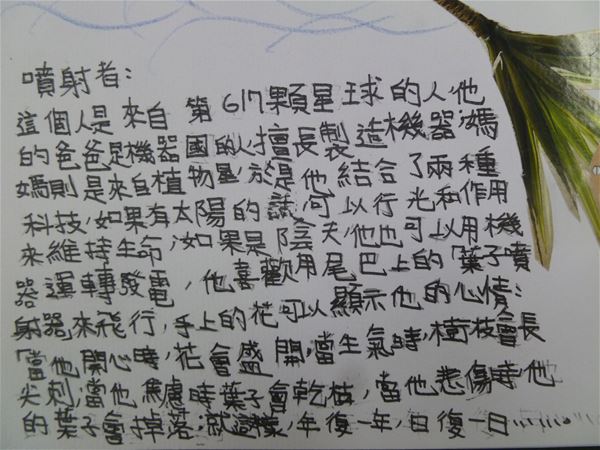 噴射者:
這個人是來自第617顆星球的人,他
的爸爸是機器國的人,擅長製造機器,媽
媽則是來自植物星,於是他結合了兩種
科技,如果有太陽的話,可以行光和作用
來維持生命,如果是陰天,他也可以用機
器運轉發電,他喜歡用尾巴上的「葉子噴
射器」來飛行,手上的花可以顯示他的心情:
「當他開心時,花會盛開,當生氣時,樹枝會長
尖刺,當他焦慮時葉子會乾枯,當他悲傷時,他
的葉子會掉落,就這樣,年復一年,日復一日……